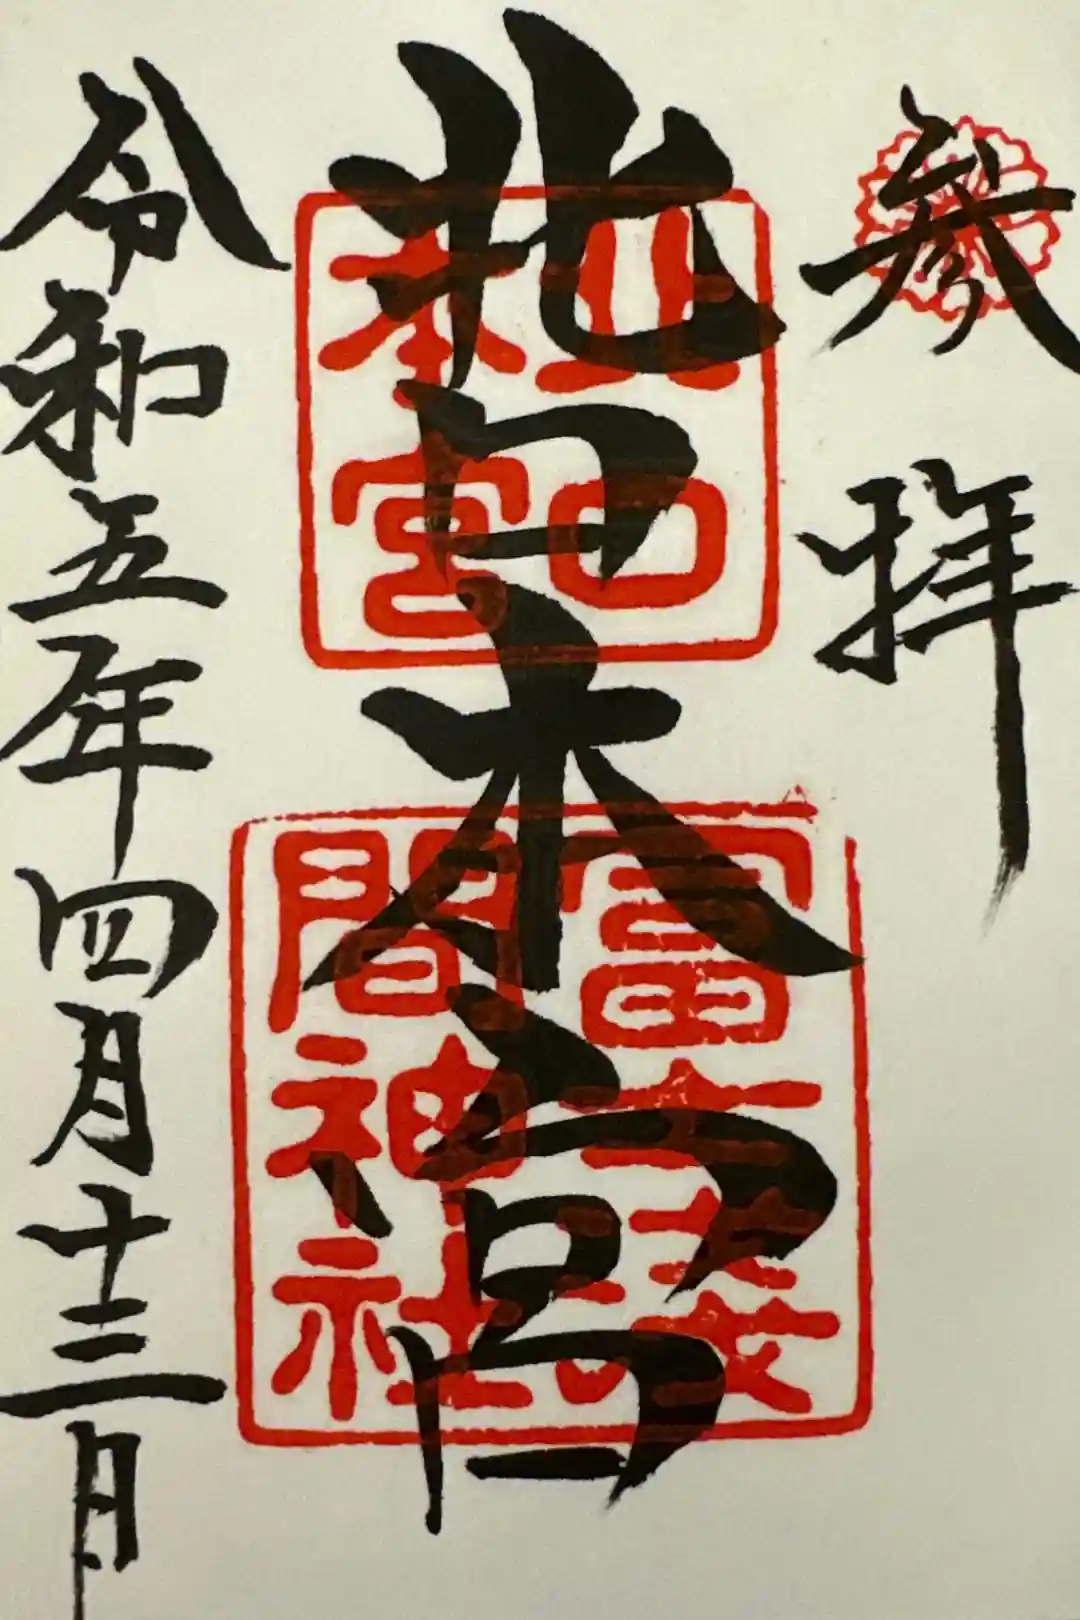 参拝
北口本宮
北口
本宮
冨士淺
間神社
令和五年四月十三日